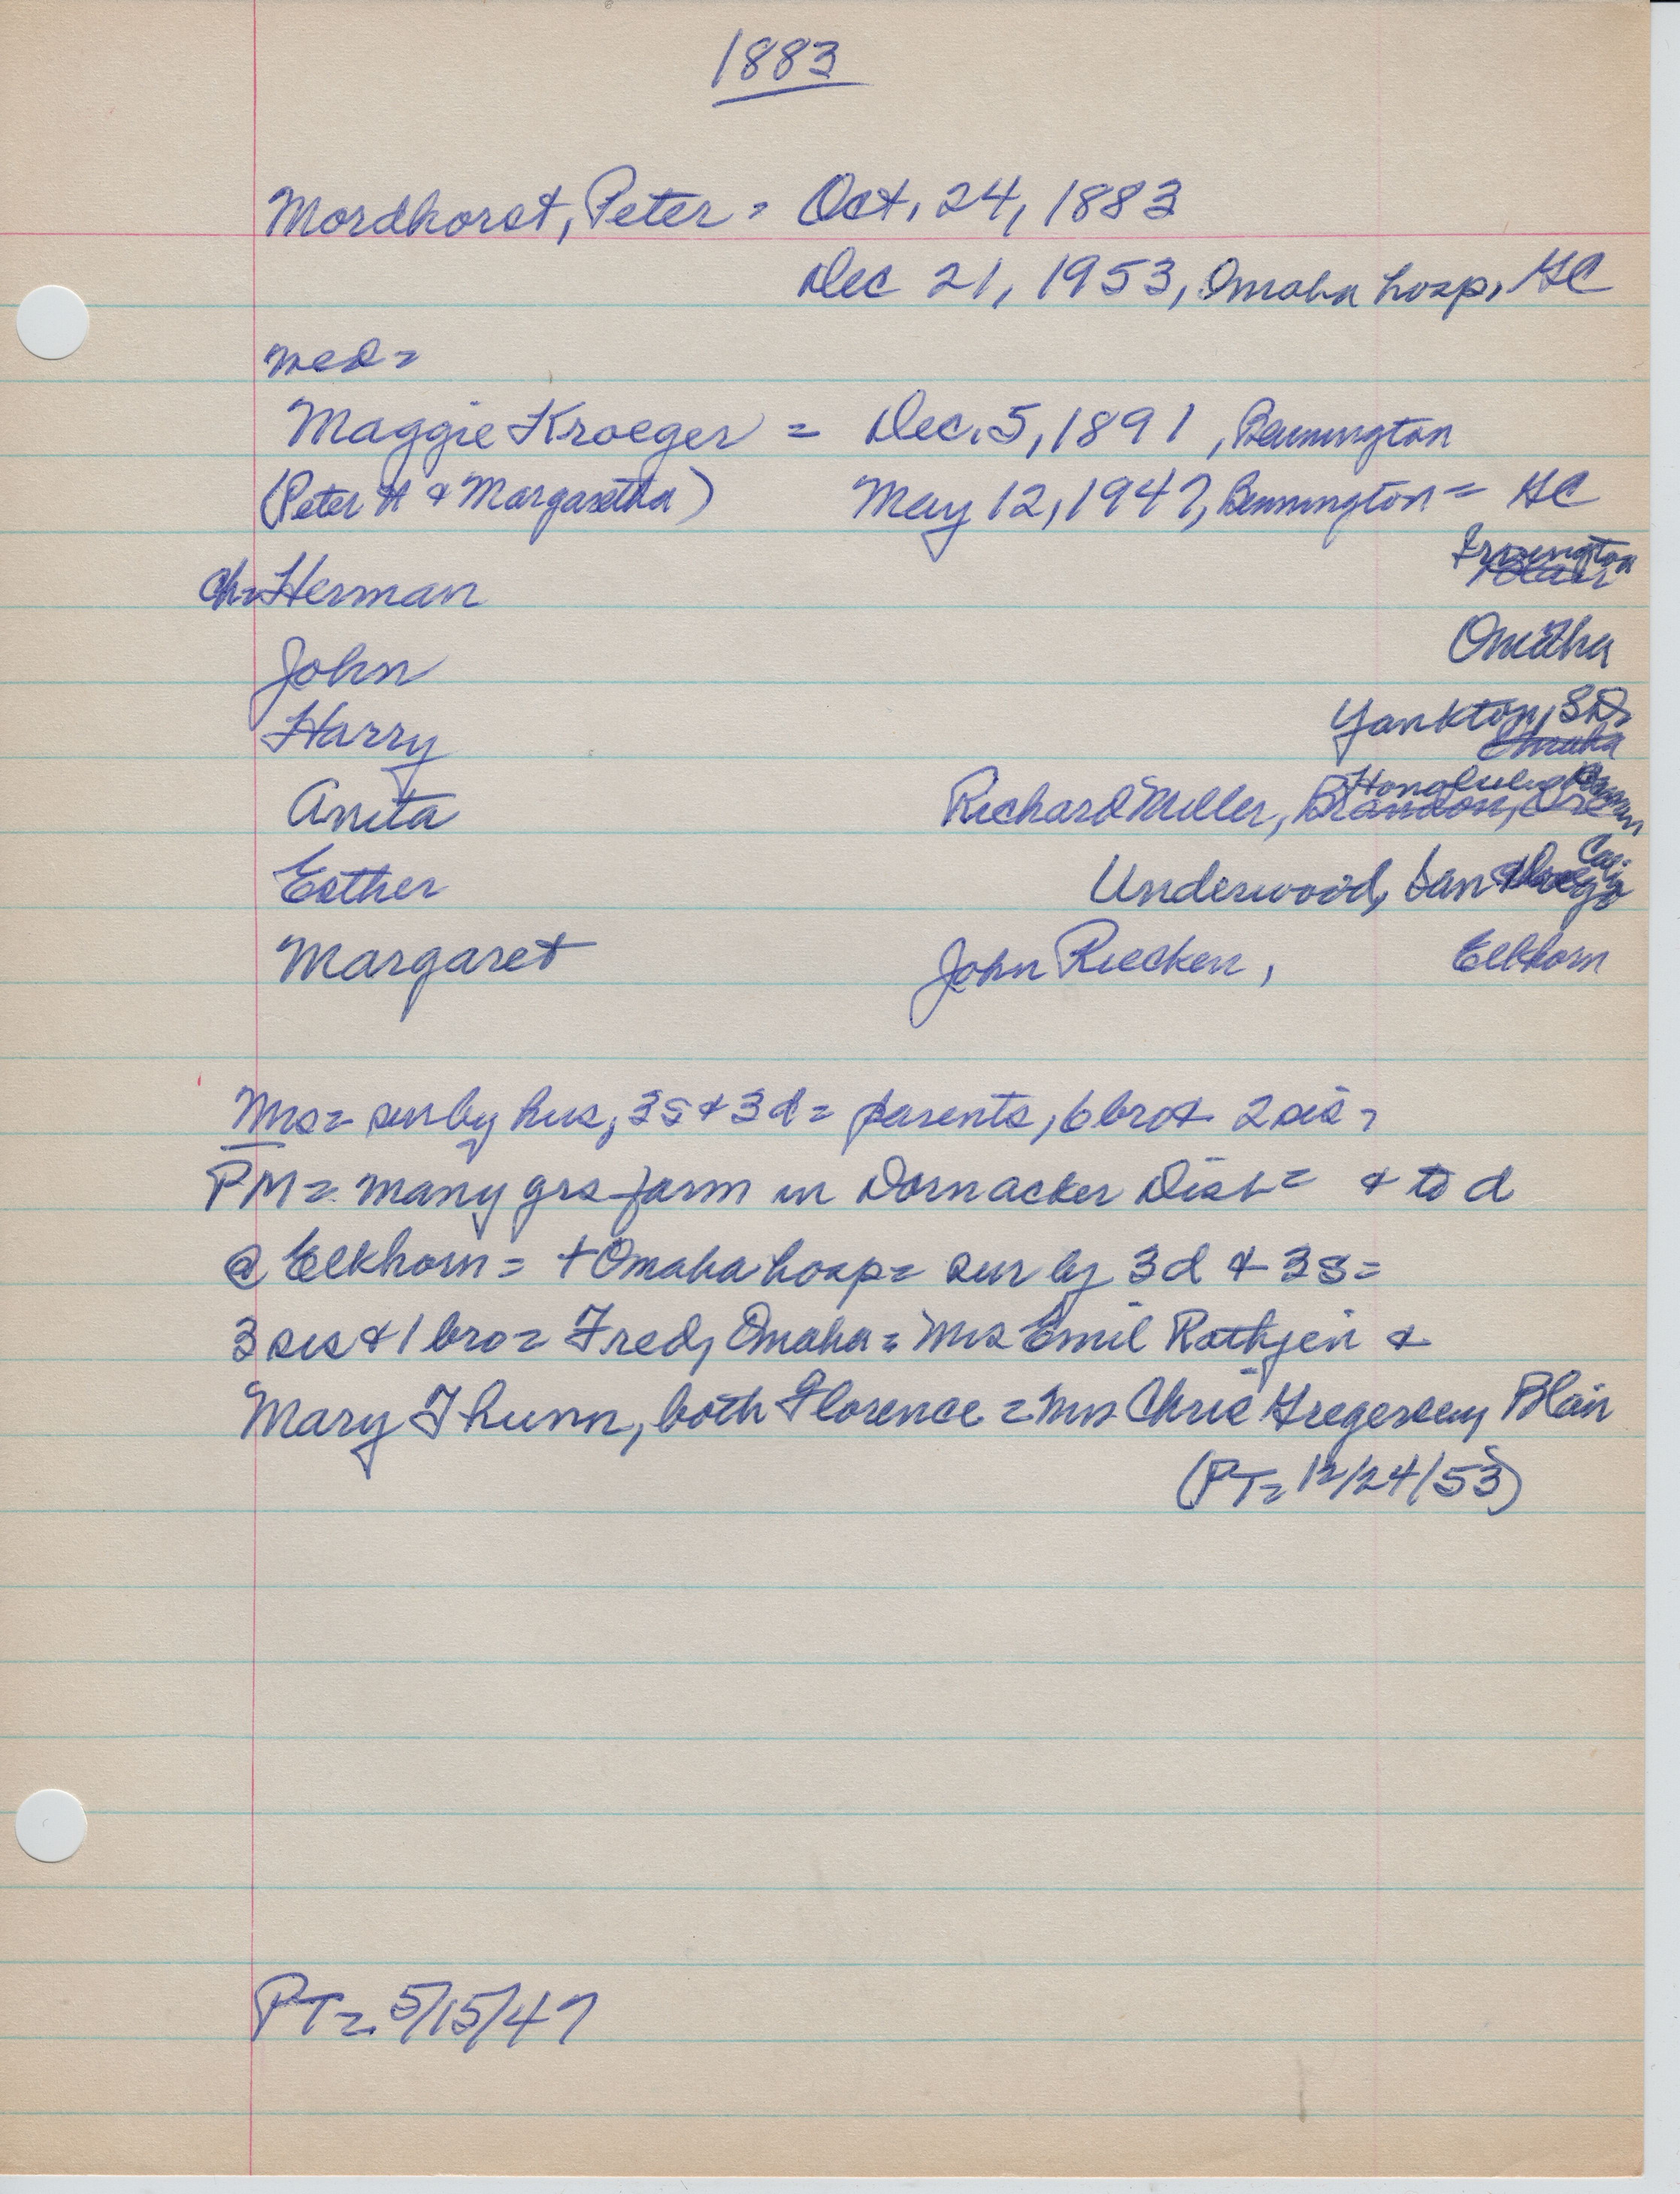 1883
Mordhorst, Peter = Oct. 24, 1883
Dec 21, 1953, Omaha hosp, GC
med =
Maggie Kroeger = Dec. 5, 1891, Bennington
(Peter H & Margaretha) May 12, 1947, Bennington = GC
ch = Herman Irvington Blair
John Omaha
Harry Yankton, SD
Omaha
Anita Richard Miller, Brandon, Ore Honolulu
Esther Underwood, San Diego Cal
Margaret John Riecken, Elkhorn
Mrs = sur by hus, 3s & 3d = parents, 6 bro & 2 sis =
PM = many yrs farm in Dornacker Dist = & to d
@ Elkhorn = + Omaha hosp = sur by 3d & 3s =
3 sis & 1 bro = Fred, Omaha = Mrs Emil Rathjen &
Mary Thunn, both Florence = Mrs Chris Gregersen, Blair
(PT = 12/24/53)
PT = 5/15/47